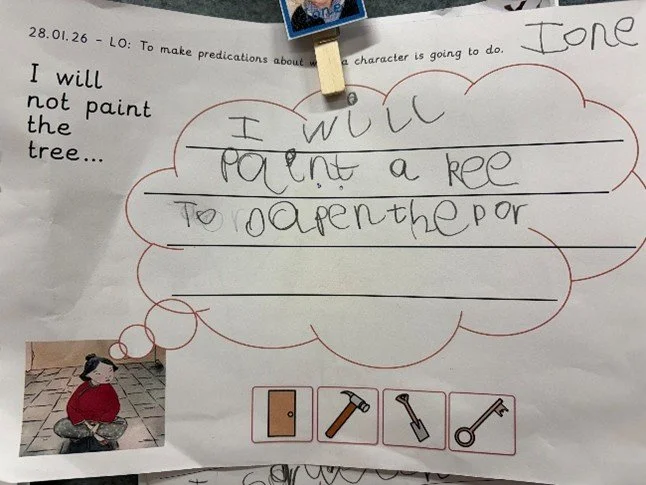 28.01.26 - LO: To make predications about w a character is going to do.
Ione
I will
not paint
the
tree...
I will
paint a kee
To oapenthepor